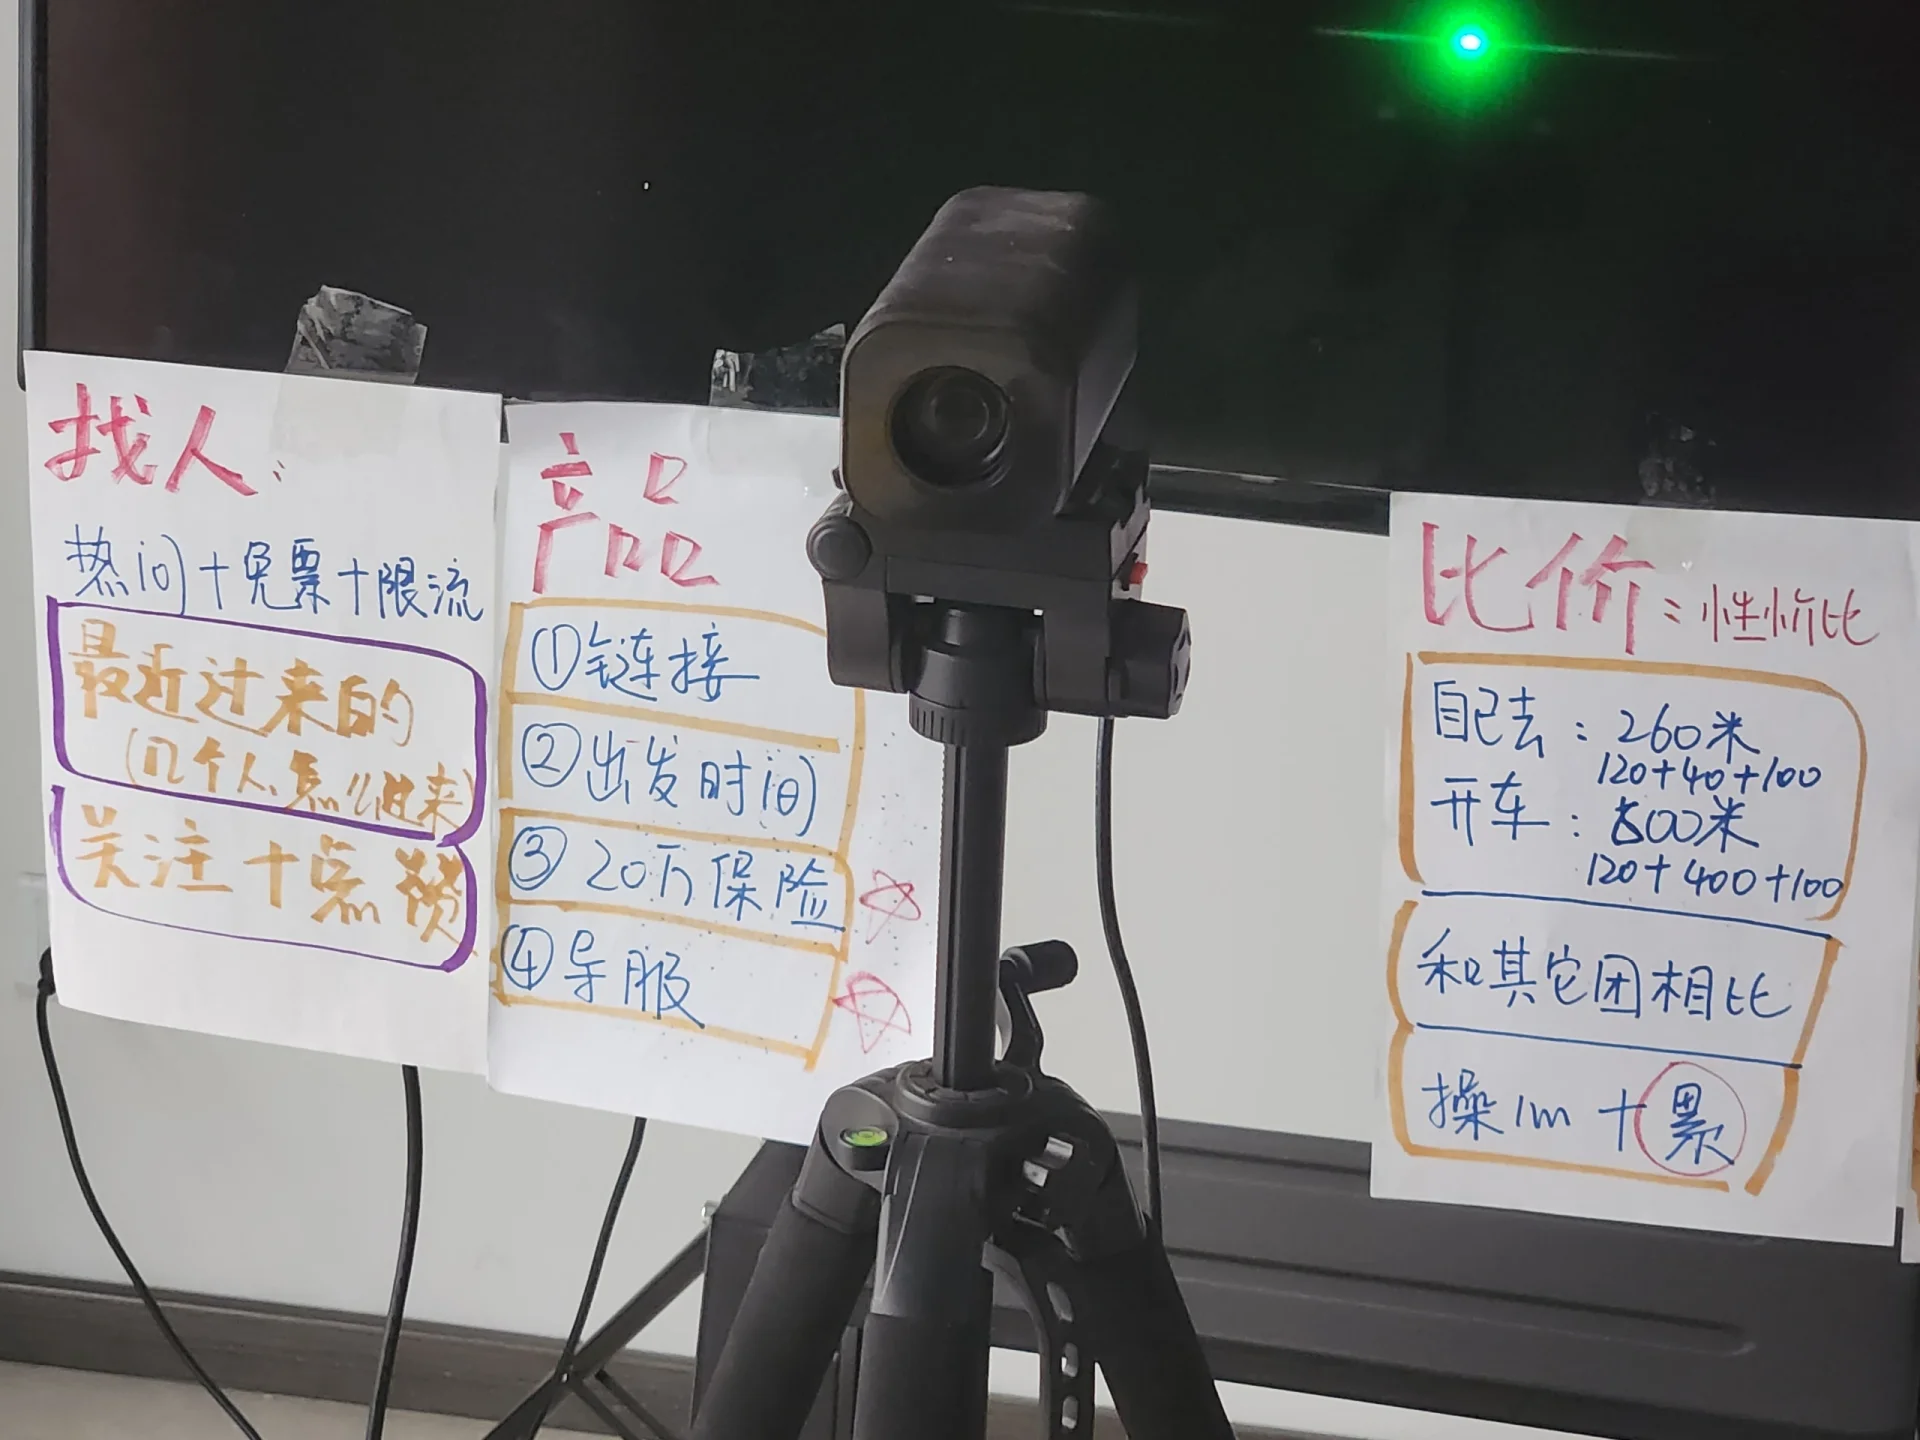 找人:
热问+免票+限流
最近过来的
(几个人,怎么过来)
关注+点赞
产品
①链接
②出发时间
③20万保险
④导服
比价:性价比
自己去:260米
120+40+100
开车:800米
120+400+100
和其它团相比
操1m+累